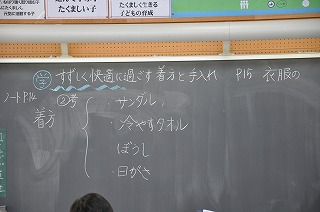 たくましい子
たくましく生きる
子どもの育成
学 すずしく快適に過ごす着方と手入れ P15 衣服の
ノートP14
②考
着方
・サンダル
・冷やすタオル
ぼうし
・日がさ